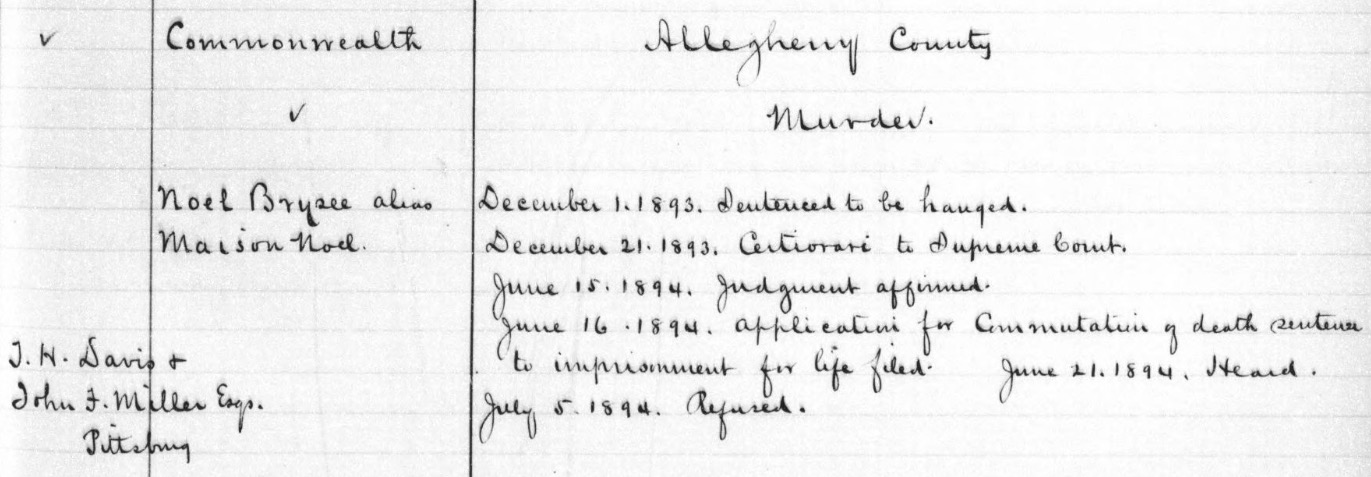 ✓ Commonwealth Allegheny County
v Murder.
Noel Brysee alias December 1. 1893. Sentenced to be hanged.
Maison Noel. December 21. 1893. Certiorari to Supreme Court.
June 15. 1894. Judgment affirmed.
June 16. 1894. Application for Commutation of death sentence
T. H. Davis + to imprisonment for life filed. June 21. 1894. Heard.
John F. Miller Esqs. July 5. 1894. Refused.
Pittsburg